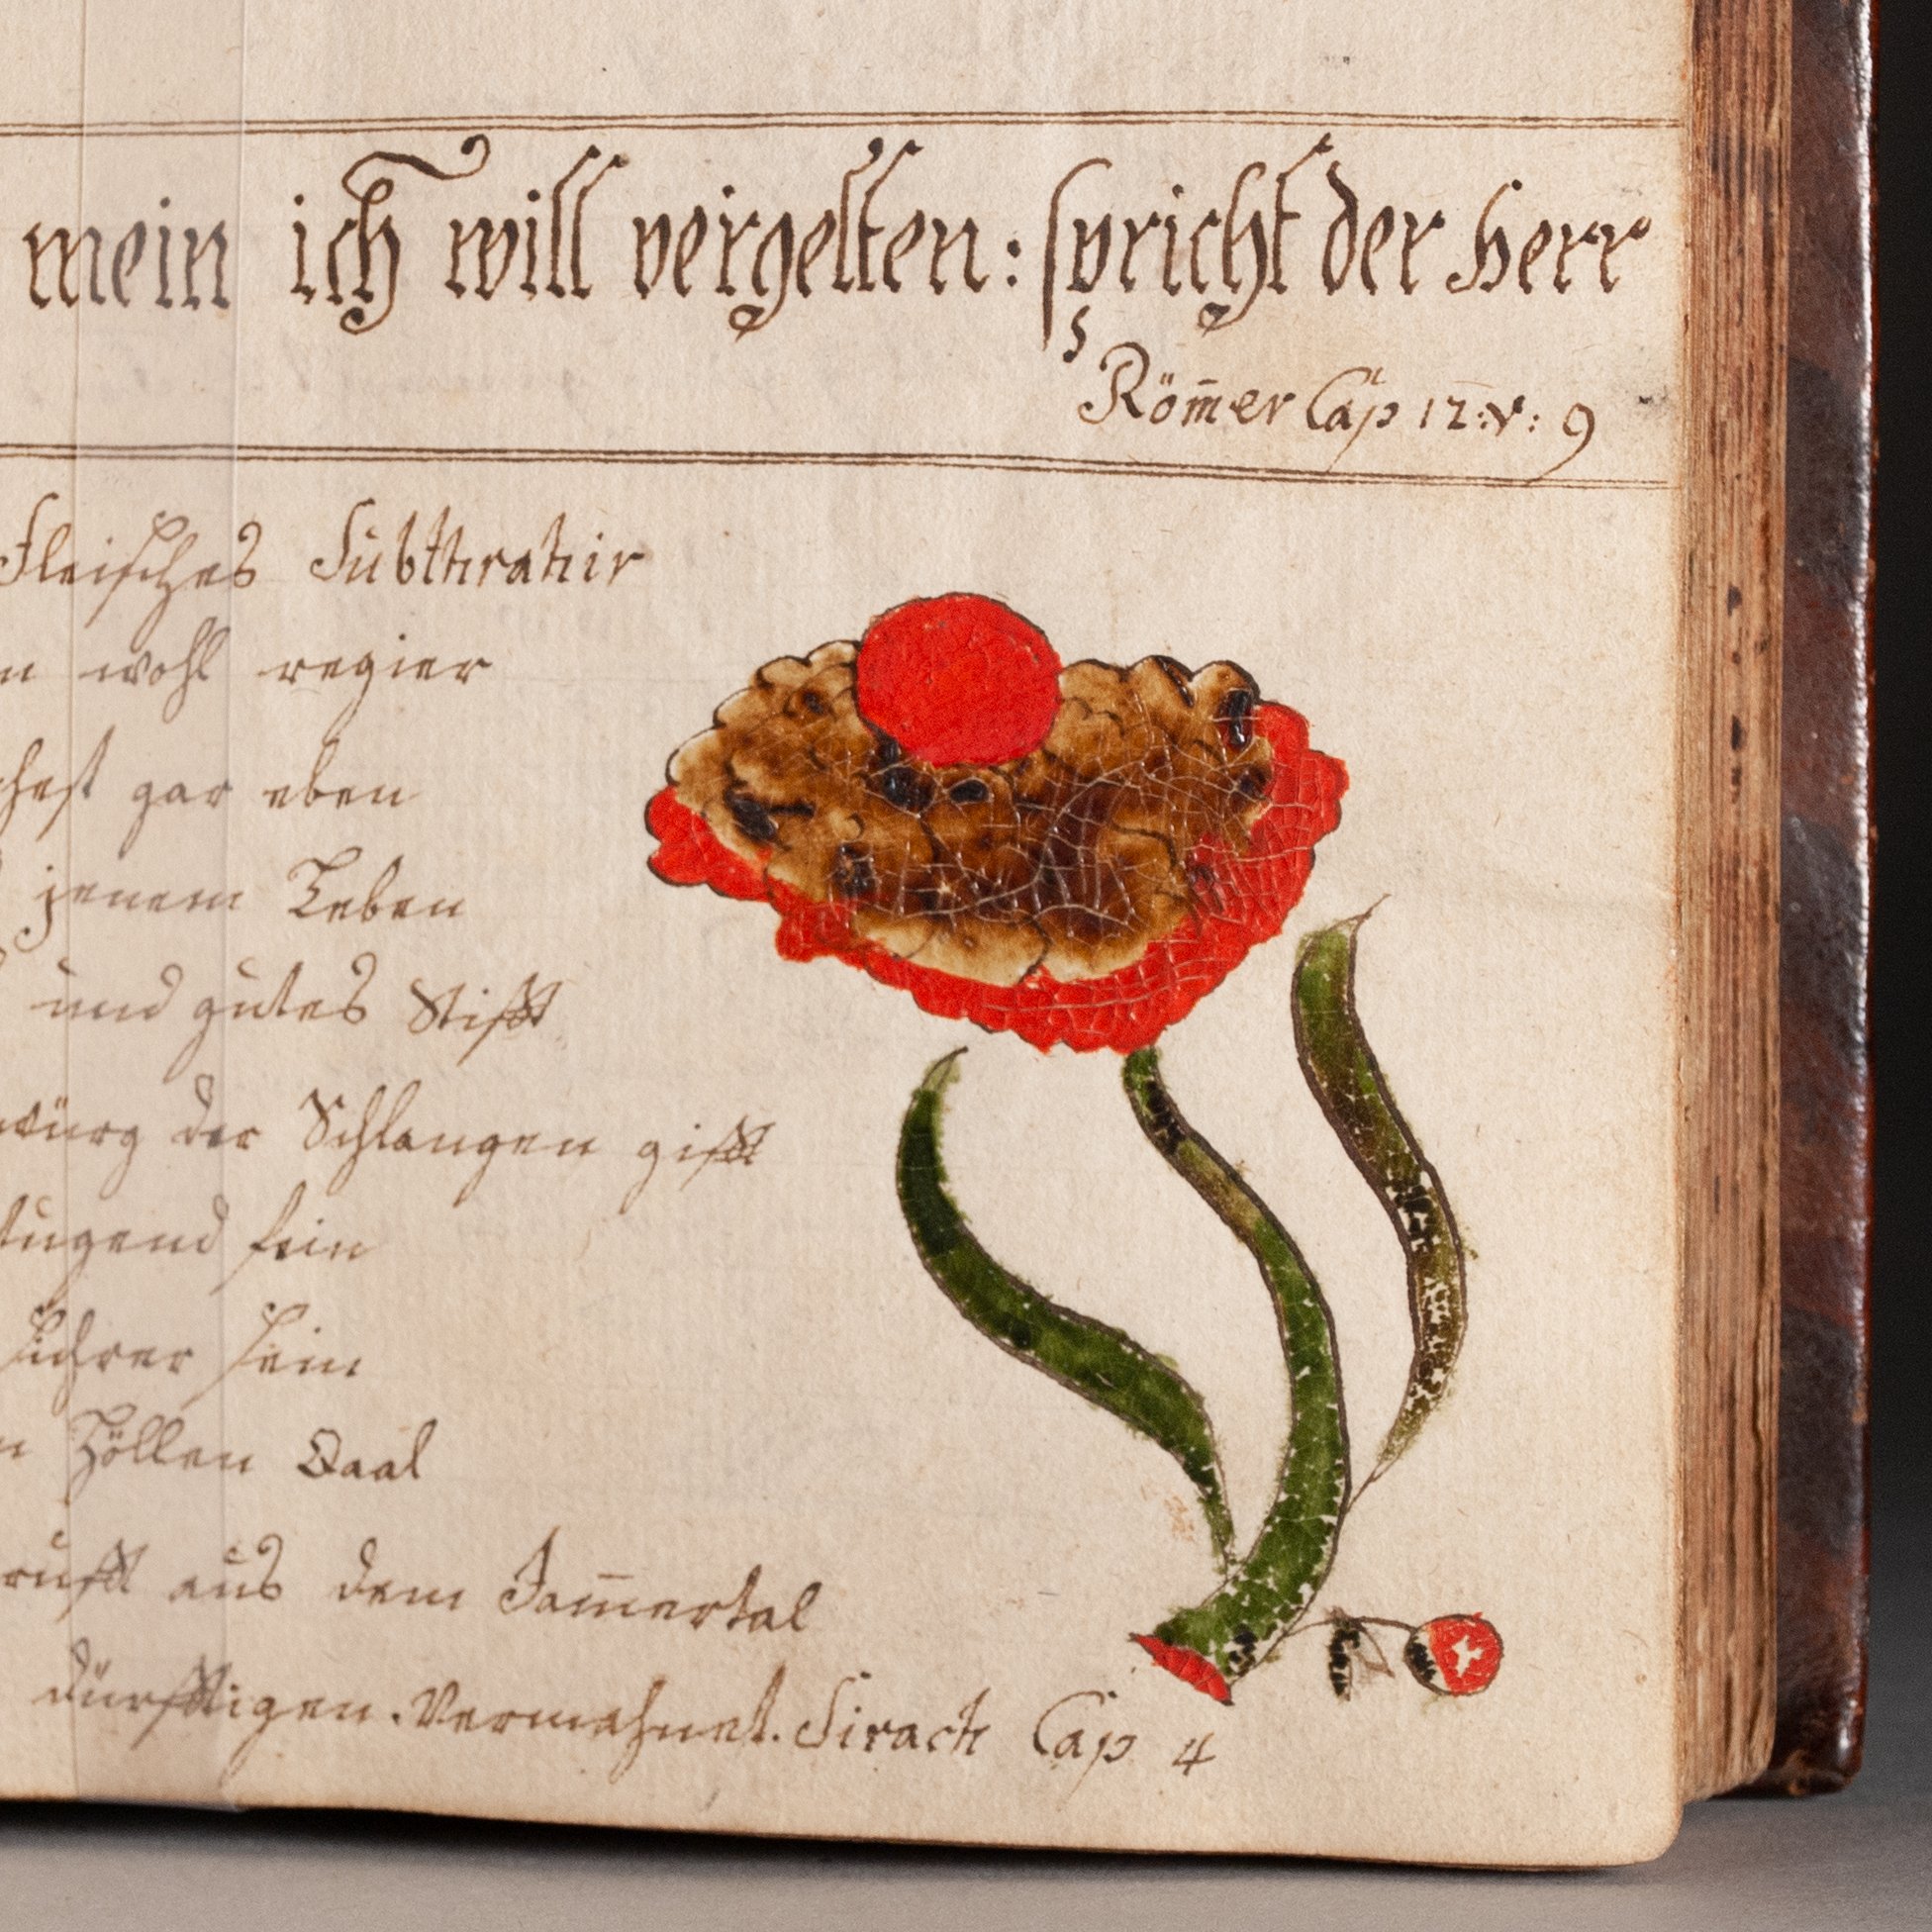 mein ich will vergelten: spricht der Herr
Röm̄er Cap 12: v: 9
Fleisches Subthrahir
wohl regier
gar eben
jenem Leben
und gutes Stifft
der Schlangen gifft
tugend sein
Führer sein
Höllen Qaal
rufft aus dem Jam̄ertal
dürfftigen. Vermahnet. Sirach Cap 4